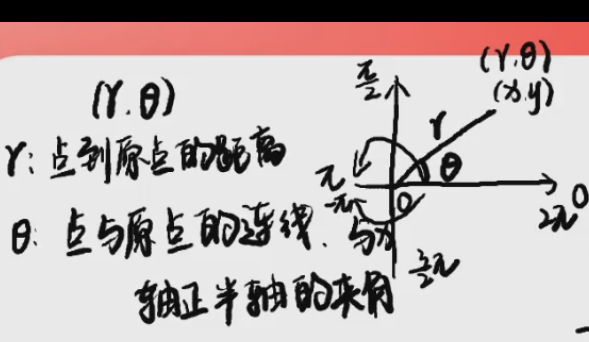 (r,θ)
r: 点到原点的距离
θ: 点与原点的连线、与x
轴正半轴的夹角
(r,θ)
(x,y)
π/2
r
θ
π
-π
O
0
2π
3/2π